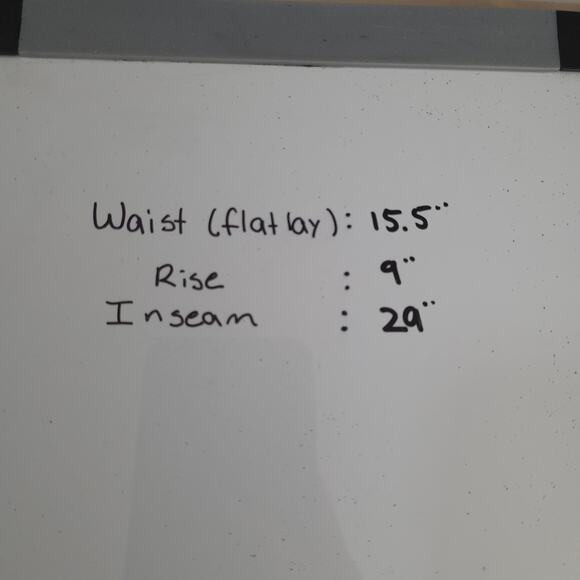 Waist (flat lay): 15.5"
Rise : 9"
Inseam : 29"